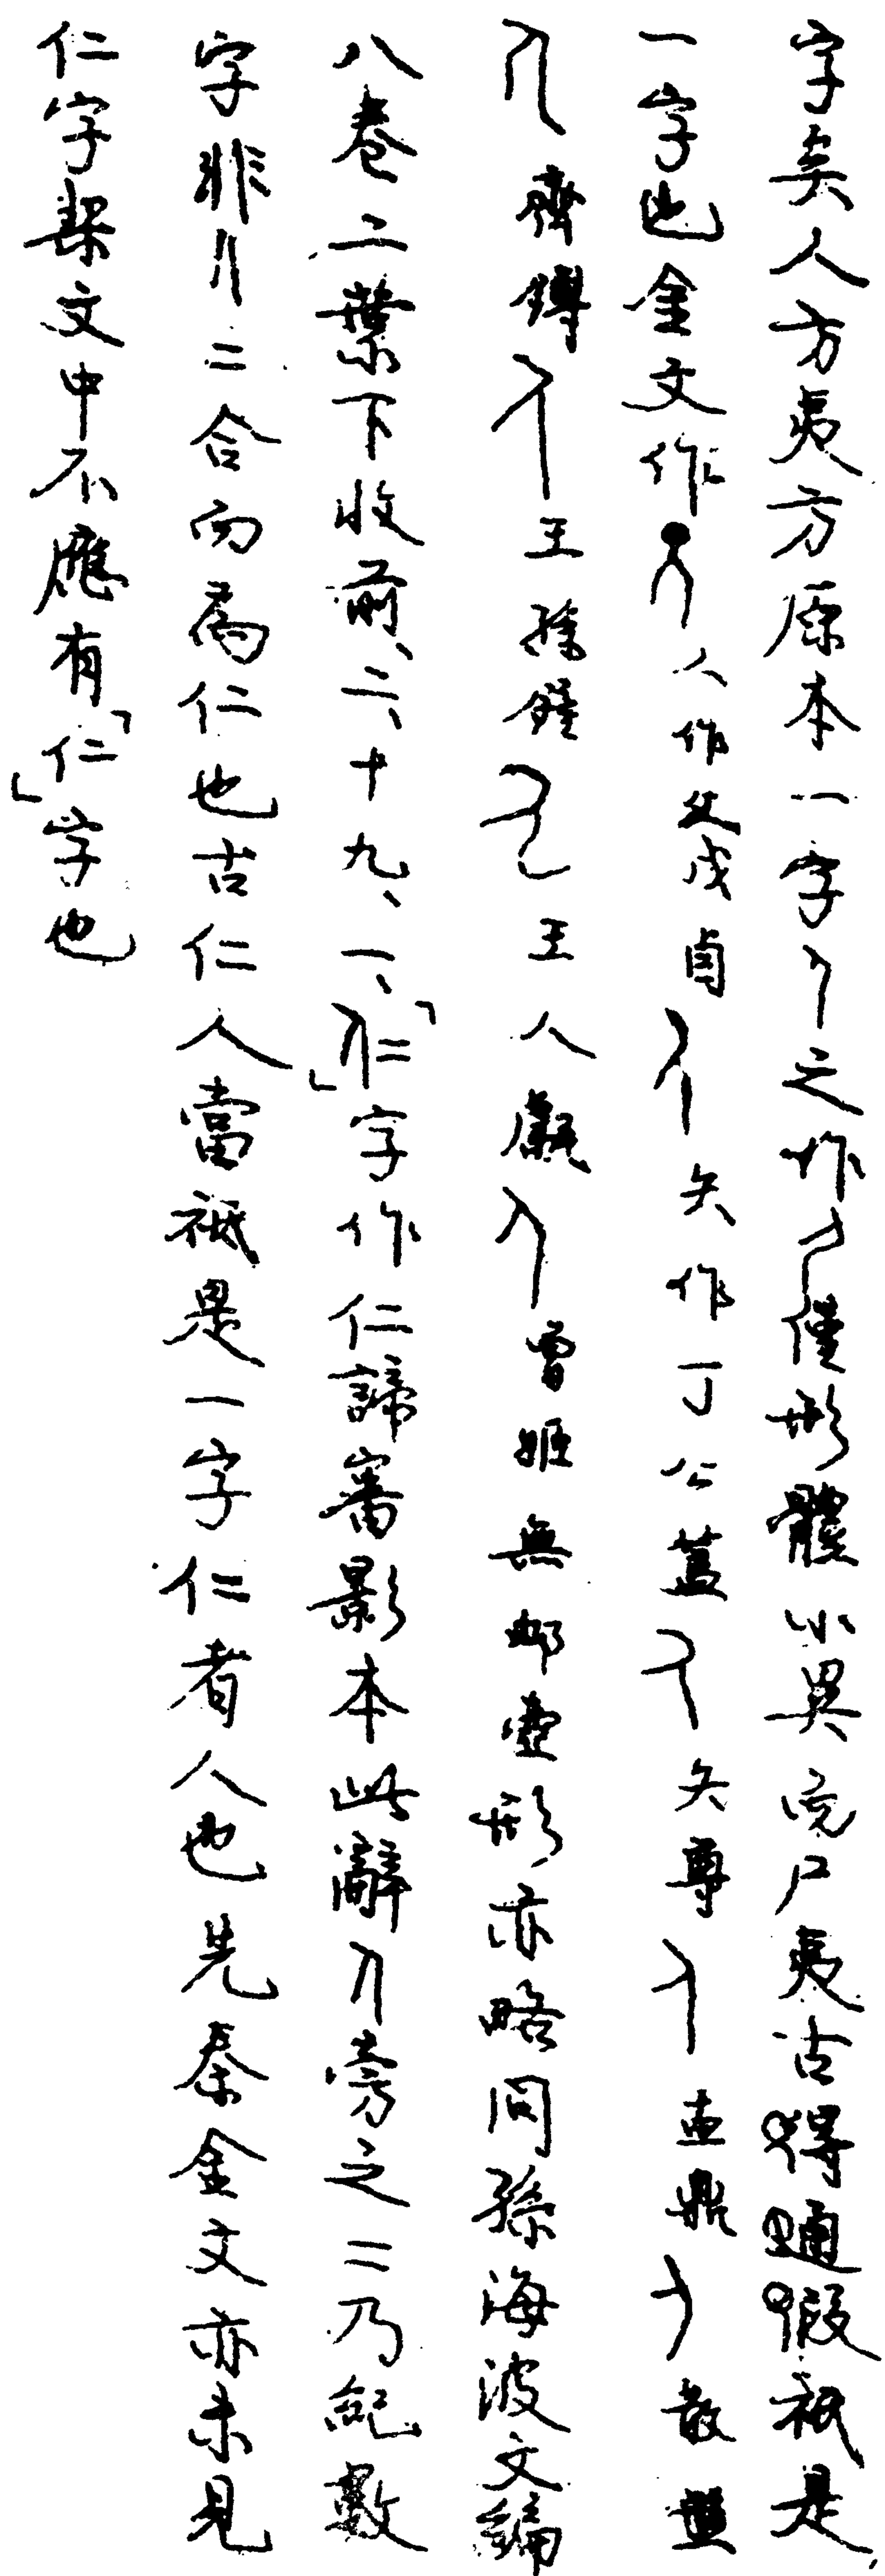 字矣人方夷方原本一字之作僅形體小異況尸夷古得通假祇是
一字也金文作人作父戊卣矢作丁公蓋矢尊盂鼎散盤
齊鎛王孫鐘王人甗曾姬無卹壺形亦略同孫海波文編
八卷二葉下收前、二、十九、一、「仁」字作仁諦審影本此辭旁之二乃紀數
字非二合而為仁也古仁人當祇是一字仁者人也先秦金文亦未見
仁字栔文中不應有「仁」字也